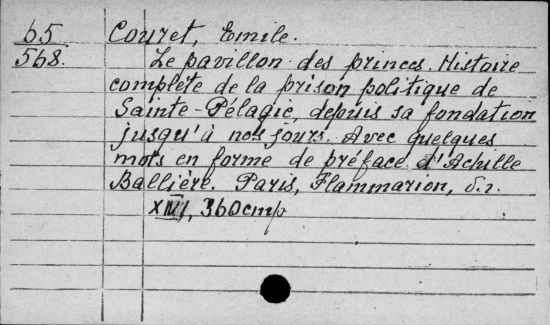 65 Couret, Emile.
568. Le pavillon des princes. Histoire
complète de la prison politique de
Sainte-Pélagie, depuis sa fondation
jusqu'à nos jours. Avec quelques
mots en forme de préface d'Achille
Ballière. Paris, Flammarion, s.d.
360 стр